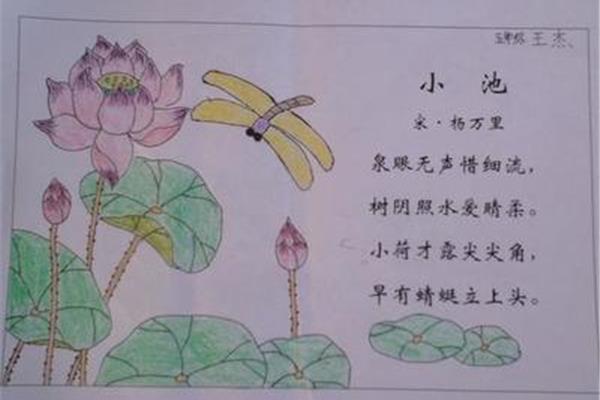 王杰、
小 池
宋·杨万里
泉眼无声惜细流，
树阴照水爱晴柔。
小荷才露尖尖角，
早有蜻蜓立上头。